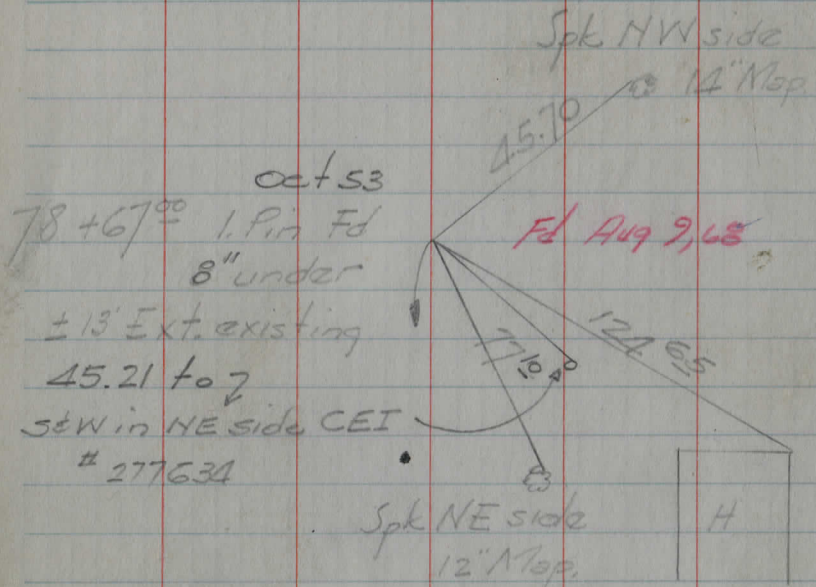 Spk NW side
14" Map.
45.70
Oct 53
78+67.00 I. Pin Fd
8" under
Fd Aug 9, 68
± 13' Ext. existing
45.21 to
77.10
124.65
S&W in NE side CEI
# 277634
Spk NE side
12" Map.
H